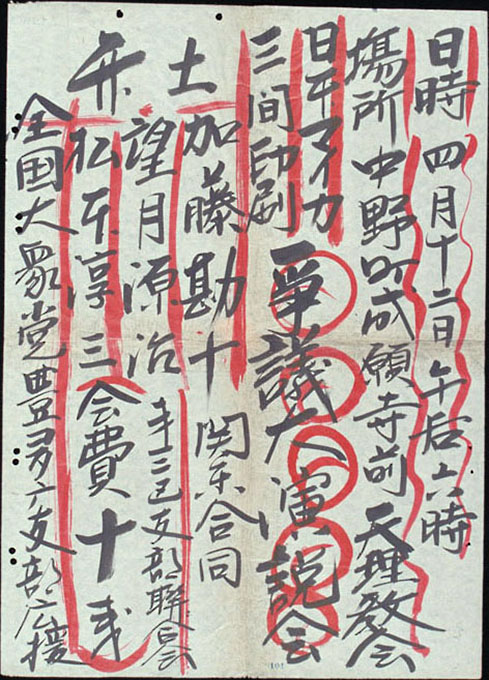 日時 四月十二日午后六時
場所 中野町成願寺前 天理教会
日本マイカ
三間印刷
争議大演説会
弁士
加藤勘十
望月源治
松本淳三
関東合同
第三区支部聯合会
会費十銭
全国大衆党豊多广支部応援